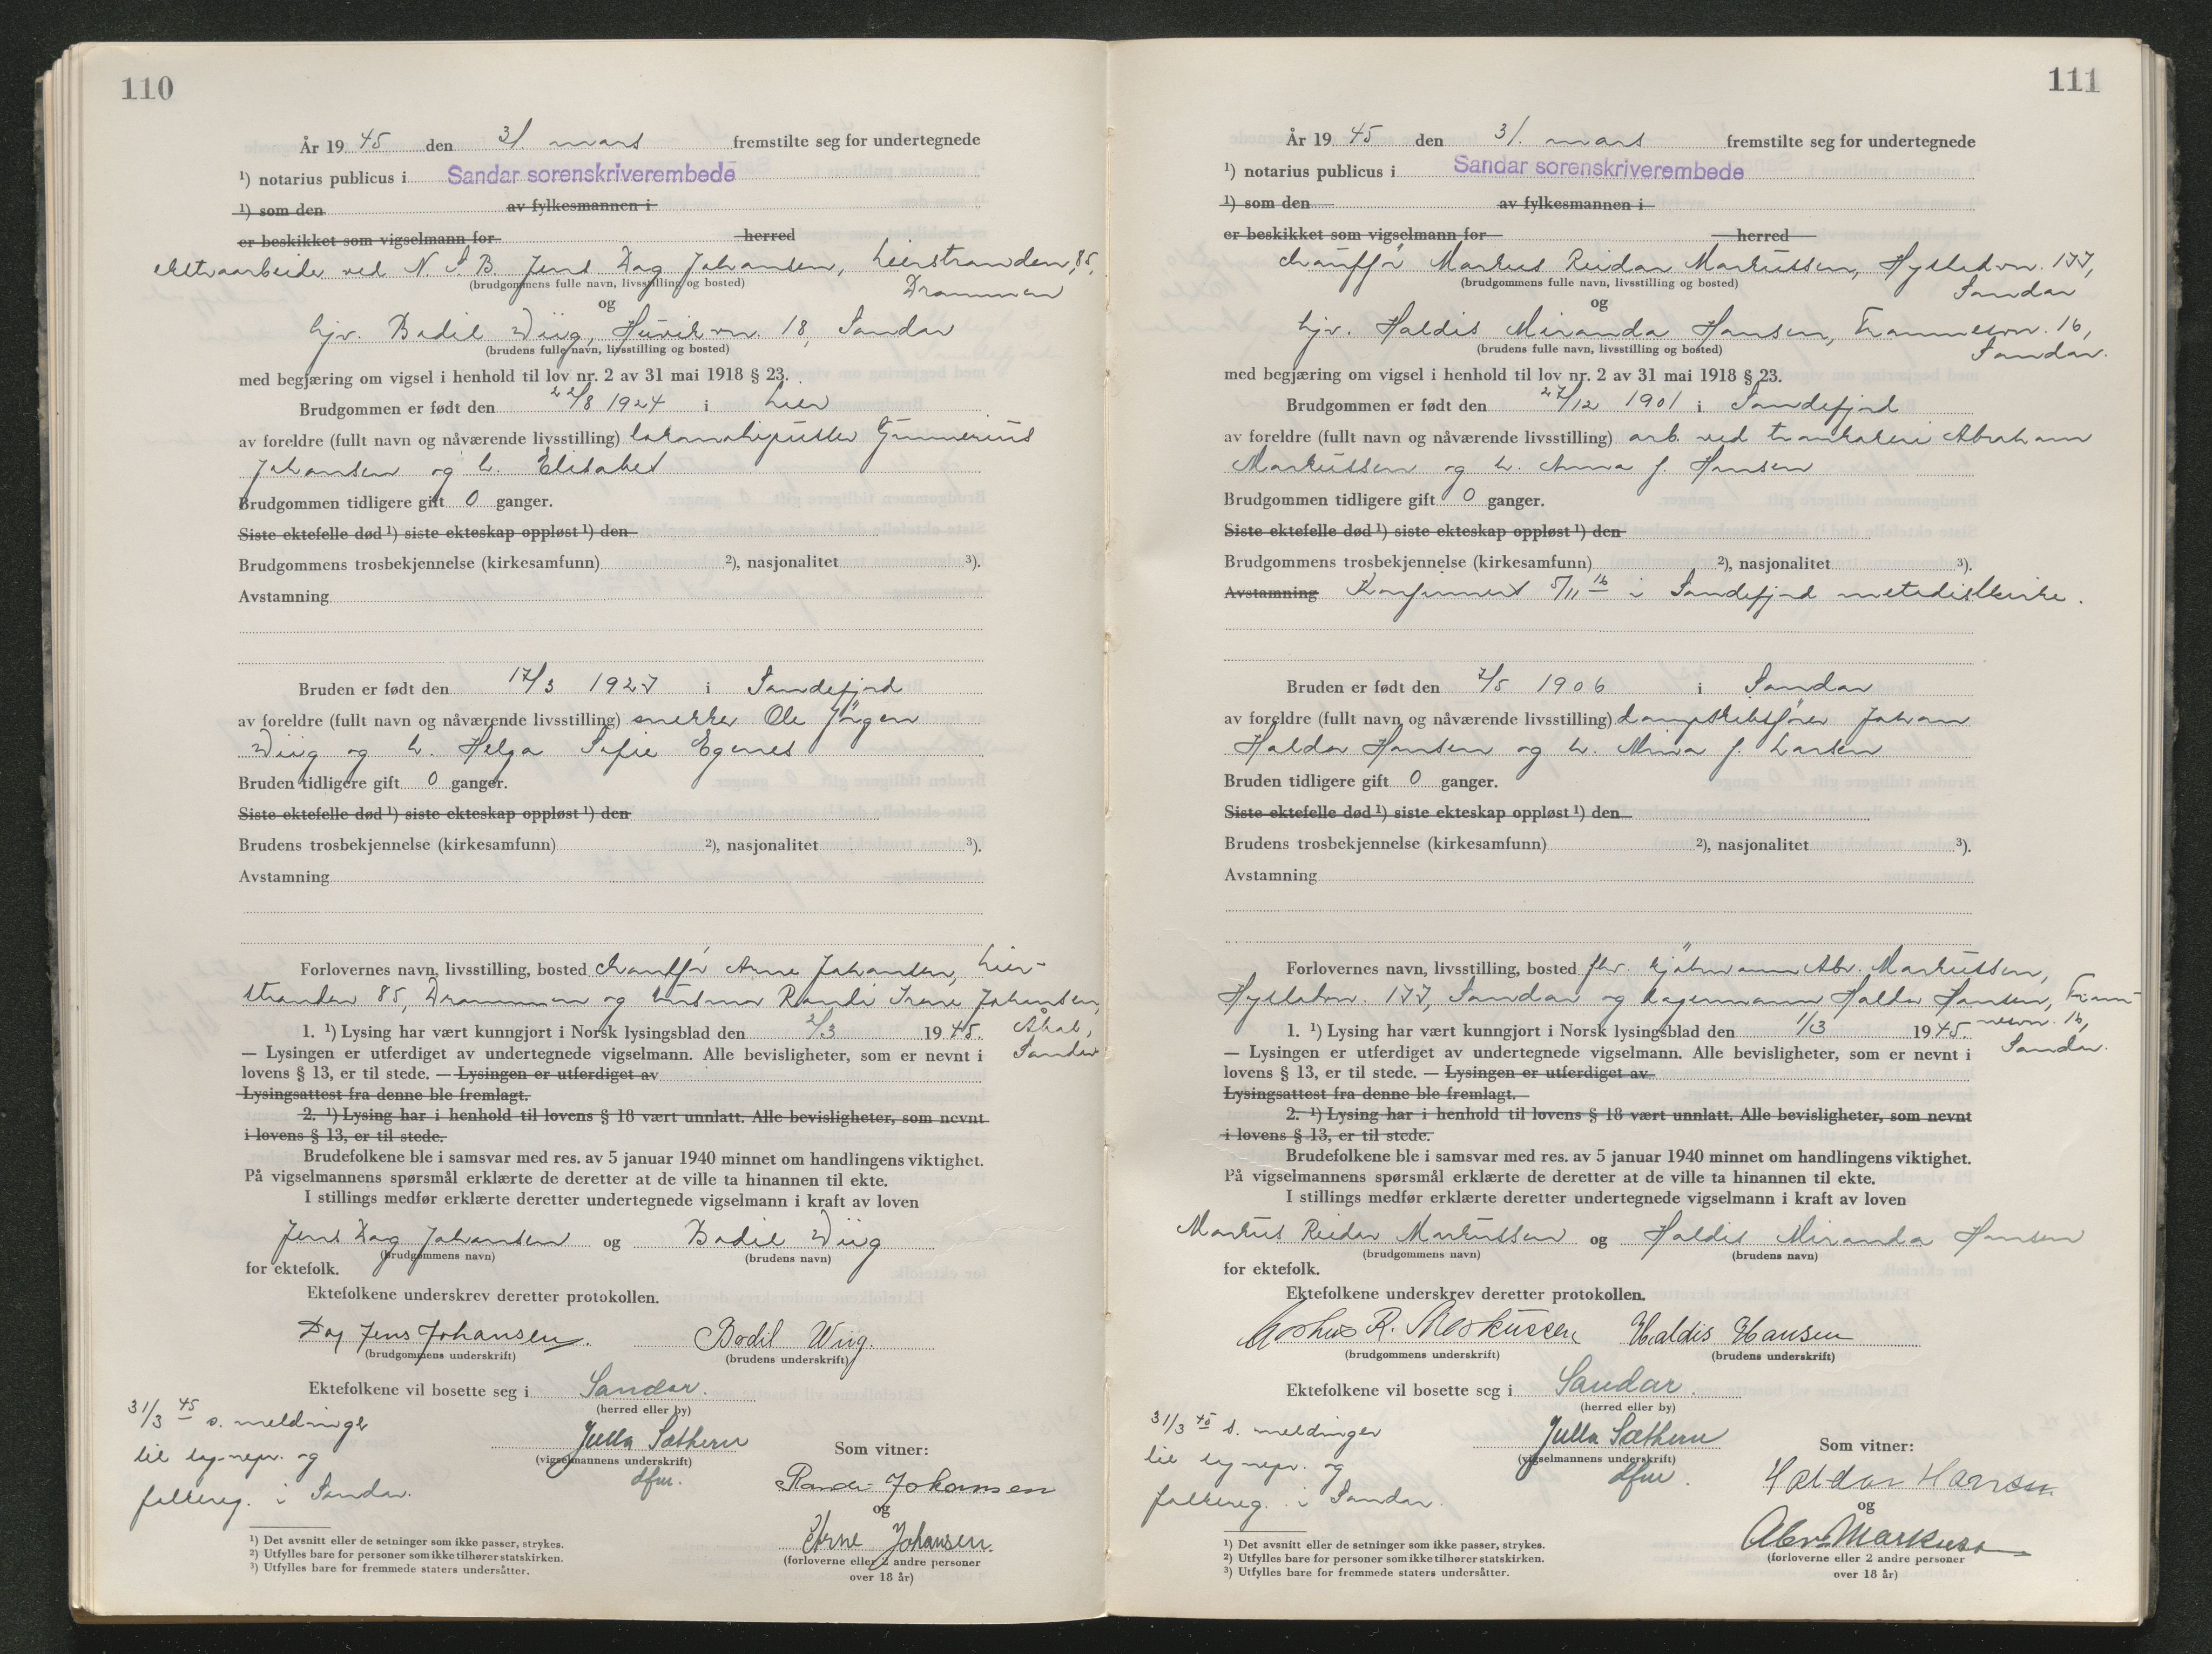 110
År 19 45 den 31. mars fremstilte seg for undertegnede
¹) notarius publicus i Sandar sorenskriverembede
¹) som den av fylkesmannen i
er beskikket som vigselmann for herred
ekstraarbeider ved N.S.B. Jens Dag Johansen, Lierstranden 85,
Drammen
(brudgommens fulle navn, livsstilling og bosted)
og
hjv. Bodil Wiig, Huvikvn. 18, Sandar
(brudens fulle navn, livsstilling og bosted)
med begjæring om vigsel i henhold til lov nr. 2 av 31 mai 1918 § 23.
Brudgommen er født den 22/8 1924 i Lier
av foreldre (fullt navn og nåværende livsstilling) lokomotivpusser Gunnerius
Johansen og h. Elisabet
Brudgommen tidligere gift 0 ganger.
Siste ektefelle død ¹) siste ekteskap oppløst ¹) den
Brudgommens trosbekjennelse (kirkesamfunn) ²), nasjonalitet ³).
Avstamning
Bruden er født den 17/3 1927 i Sandefjord
av foreldre (fullt navn og nåværende livsstilling) snekker Ole Jörgen
Wiig og h. Helga Sofie Egenes
Bruden tidligere gift 0 ganger.
Siste ektefelle død ¹) siste ekteskap oppløst ¹) den
Brudens trosbekjennelse (kirkesamfunn) ²), nasjonalitet ³).
Avstamning
Forlovernes navn, livsstilling, bosted chauffør Arne Johansen, Lier-
stranden 85, Drammen og husmor Randi Irene Johansen,
Sandar
1. ¹) Lysing har vært kunngjort i Norsk lysingsblad den 2/3 19 45.
— Lysingen er utferdiget av undertegnede vigselmann. Alle bevisligheter, som er nevnt i
lovens § 13, er til stede. — Lysingen er utferdiget av
Lysingsattest fra denne ble fremlagt.
2. ¹) Lysing har i henhold til lovens § 18 vært unnlatt. Alle bevisligheter, som nevnt
i lovens § 13, er til stede.
Brudefolkene ble i samsvar med res. av 5 januar 1940 minnet om handlingens viktighet.
På vigselmannens spørsmål erklærte de deretter at de ville ta hinannen til ekte.
I stillings medfør erklærte deretter undertegnede vigselmann i kraft av loven
Jens Dag Johansen og Bodil Wiig
(brudgommens navn) (brudens navn)
for ektefolk.
Ektefolkene underskrev deretter protokollen.
Dag Jens Johansen. Bodil Wiig.
(brudgommens underskrift) (brudens underskrift)
Ektefolkene vil bosette seg i Sandar.
(herred eller by)
31/3 45 s. meldinger
til og
folkereg. i Sandar.
Julla Sæthern
(vigselmannens underskrift)
dfm.
Som vitner:
Randi Johansen
og
Arne Johansen.
(forloverne eller 2 andre personer
over 18 år)
¹) Det avsnitt eller de setninger som ikke passer, strykes.
²) Utfylles bare for personer som ikke tilhører statskirken.
³) Utfylles bare for fremmede staters undersåtter.
111
År 19 45 den 31. mars fremstilte seg for undertegnede
¹) notarius publicus i Sandar sorenskriverembede
¹) som den av fylkesmannen i
er beskikket som vigselmann for herred
chauffør Markus Reidar Markussen, Hystadvn. 177,
Sandar
(brudgommens fulle navn, livsstilling og bosted)
og
hjv. Haldis Miranda Hansen, Framnesvn. 16,
Sandar.
(brudens fulle navn, livsstilling og bosted)
med begjæring om vigsel i henhold til lov nr. 2 av 31 mai 1918 § 23.
Brudgommen er født den 27/12 1901 i Sandefjord
av foreldre (fullt navn og nåværende livsstilling) arb. ved trankokeri Abraham
Markussen og h. Anna f. Hansen
Brudgommen tidligere gift 0 ganger.
Siste ektefelle død ¹) siste ekteskap oppløst ¹) den
Brudgommens trosbekjennelse (kirkesamfunn) ²), nasjonalitet ³).
Avstamning Konfirmert 5/11 16 i Sandefjord metodistkirke.
Bruden er født den 7/5 1906 i Sandar
av foreldre (fullt navn og nåværende livsstilling) dampskibsfører Johan
Haldor Hansen og h. Mina f. Larsen
Bruden tidligere gift 0 ganger.
Siste ektefelle død ¹) siste ekteskap oppløst ¹) den
Brudens trosbekjennelse (kirkesamfunn) ²), nasjonalitet ³).
Avstamning
Forlovernes navn, livsstilling, bosted fhv. sjömann Abr. Markussen,
Hystadvn. 177, Sandar og lagermann Haldor Hansen, Fram-
nesvn. 16,
Sandar.
1. ¹) Lysing har vært kunngjort i Norsk lysingsblad den 1/3 19 45.
— Lysingen er utferdiget av undertegnede vigselmann. Alle bevisligheter, som er nevnt i
lovens § 13, er til stede. — Lysingen er utferdiget av
Lysingsattest fra denne ble fremlagt.
2. ¹) Lysing har i henhold til lovens § 18 vært unnlatt. Alle bevisligheter, som nevnt
i lovens § 13, er til stede.
Brudefolkene ble i samsvar med res. av 5 januar 1940 minnet om handlingens viktighet.
På vigselmannens spørsmål erklærte de deretter at de ville ta hinannen til ekte.
I stillings medfør erklærte deretter undertegnede vigselmann i kraft av loven
Markus Reidar Markussen og Haldis Miranda Hansen
(brudgommens navn) (brudens navn)
for ektefolk.
Ektefolkene underskrev deretter protokollen.
Markus R. Markussen Haldis Hansen
(brudgommens underskrift) (brudens underskrift)
Ektefolkene vil bosette seg i Sandar.
(herred eller by)
31/3 45 s. meldinger
til og
folkereg. i Sandar.
Julla Sæthern
(vigselmannens underskrift)
dfm.
Som vitner:
Haldor Hansen
og
Abr. Markuss
(forloverne eller 2 andre personer
over 18 år)
¹) Det avsnitt eller de setninger som ikke passer, strykes.
²) Utfylles bare for personer som ikke tilhører statskirken.
³) Utfylles bare for fremmede staters undersåtter.